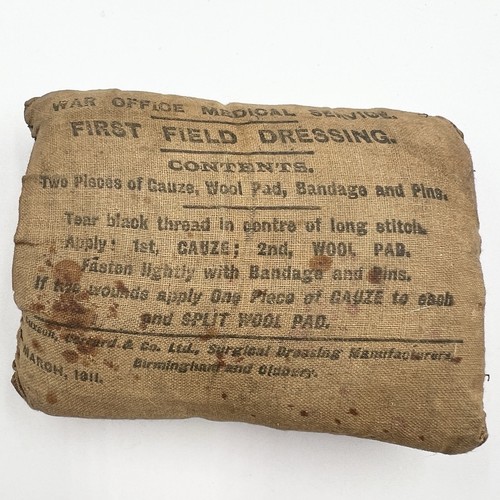 WAR OFFICE MEDICAL SERVICE.
FIRST FIELD DRESSING.
CONTENTS.
Two Pieces of Gauze, Wool Pad, Bandage and Pins.
Tear black thread in centre of long stitch.
Apply: 1st, GAUZE; 2nd, WOOL PAD.
Fasten lightly with Bandage and Pins.
If two wounds apply One Piece of GAUZE to each
and SPLIT WOOL PAD.
& Co. Ltd., Surgical Dressing Manufacturers,
Birmingham and Oldbury.
MARCH, 1911.